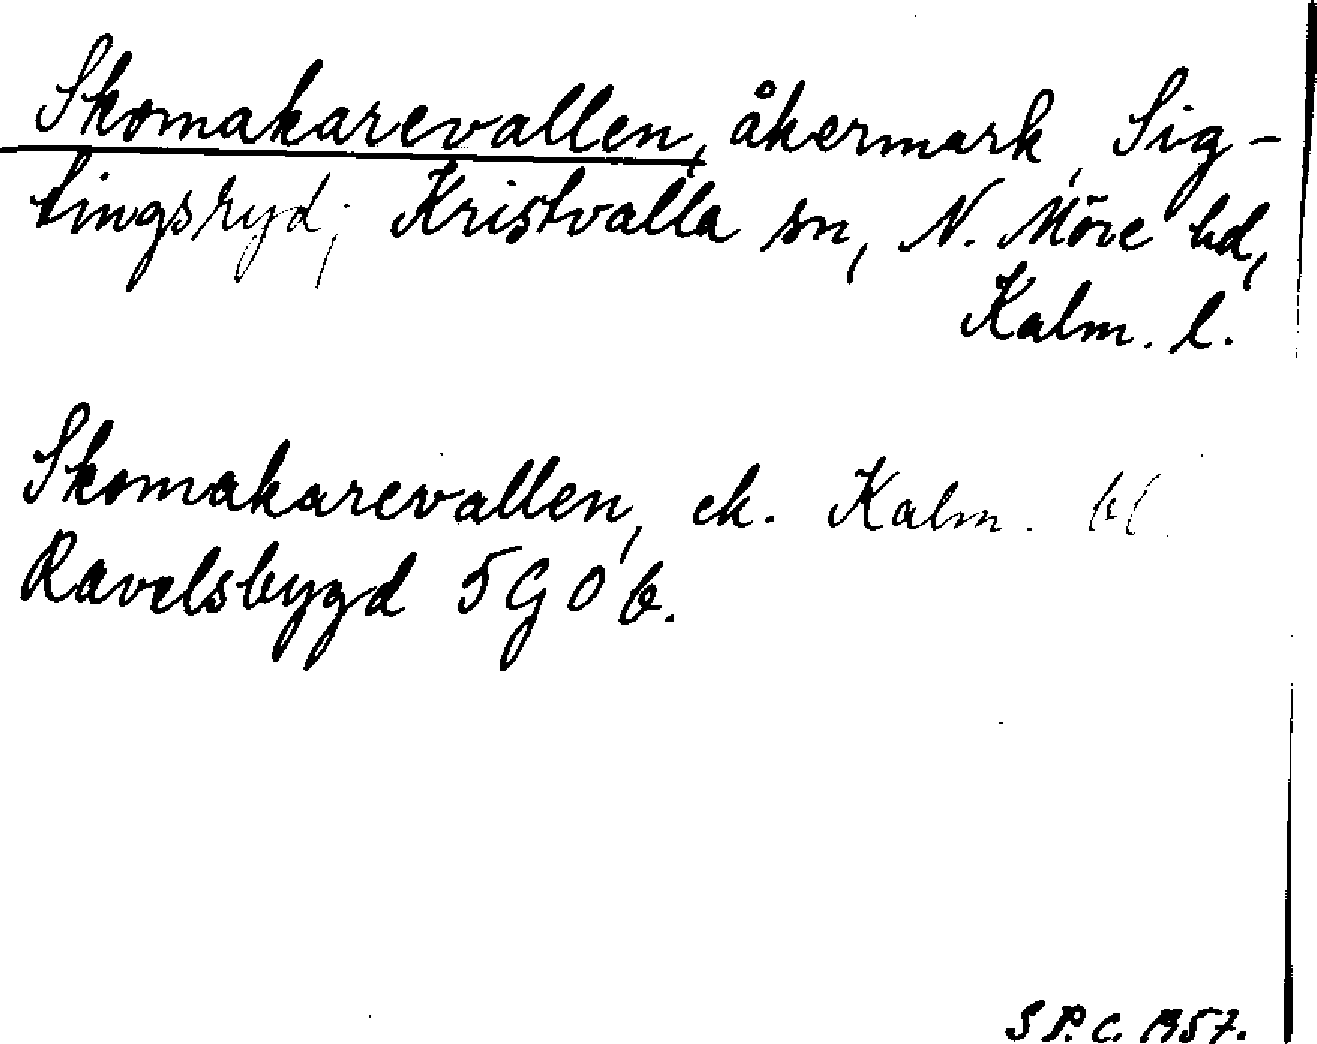 Skomakarevallen, åkermark, Sig-
tingsryd, Kristvalla sn, N. Möre hd,
Kalm. l.
Skomakarevallen, ek. Kalm. bl.
Ravelsbygd 5G0b.
S P. C. 1957.